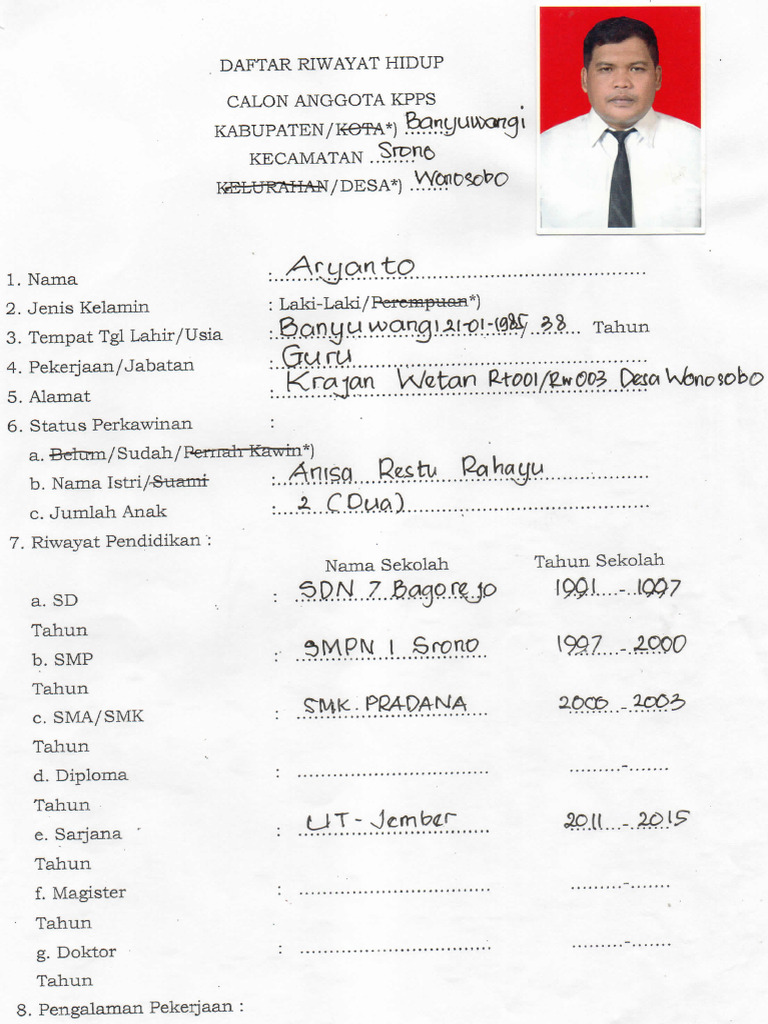 DAFTAR RIWAYAT HIDUP
CALON ANGGOTA KPPS
KABUPATEN/KOTA*) Banyuwangi
KECAMATAN Srono
KELURAHAN/DESA*) Wonosobo
1. Nama : Aryanto
2. Jenis Kelamin : Laki-Laki/Perempuan*)
3. Tempat Tgl Lahir/Usia : Banyuwangi 21-01-1985/ 38 Tahun
4. Pekerjaan/Jabatan : Guru
5. Alamat : Krajan Wetan Rt001/Rw003 Desa Wonosobo
6. Status Perkawinan :
a. Belum/Sudah/Pernah Kawin*)
b. Nama Istri/Suami : Anisa Restu Rahayu
c. Jumlah Anak : 2 (Dua)
7. Riwayat Pendidikan :
Nama Sekolah Tahun Sekolah
a. SD : SDN 7 Bagorejo 1991 - 1997
Tahun
b. SMP : SMPN 1 Srono 1997 - 2000
Tahun
c. SMA/SMK : SMK. PRADANA 2000 - 2003
Tahun
d. Diploma : ................................ .........-.......
Tahun
e. Sarjana : UT-Jember 2011 - 2015
Tahun
f. Magister : ................................ .........-.......
Tahun
g. Doktor : ................................ .........-.......
Tahun
8. Pengalaman Pekerjaan :